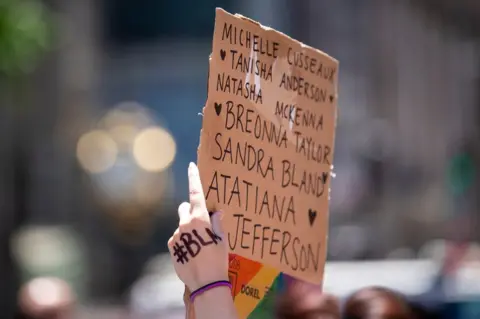 MICHELLE CUSSEAUX
♥ TANISHA ANDERSON ♥
NATASHA MCKENNA
♥ BREONNA TAYLOR
SANDRA BLAND ♥
ATATIANA
JEFFERSON ♥
#BLM
DOREL